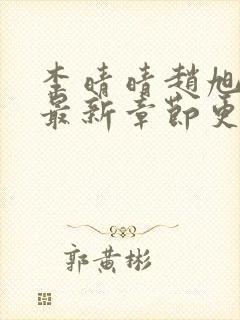 李晴晴趙旭
最新章節更
郭黃彬